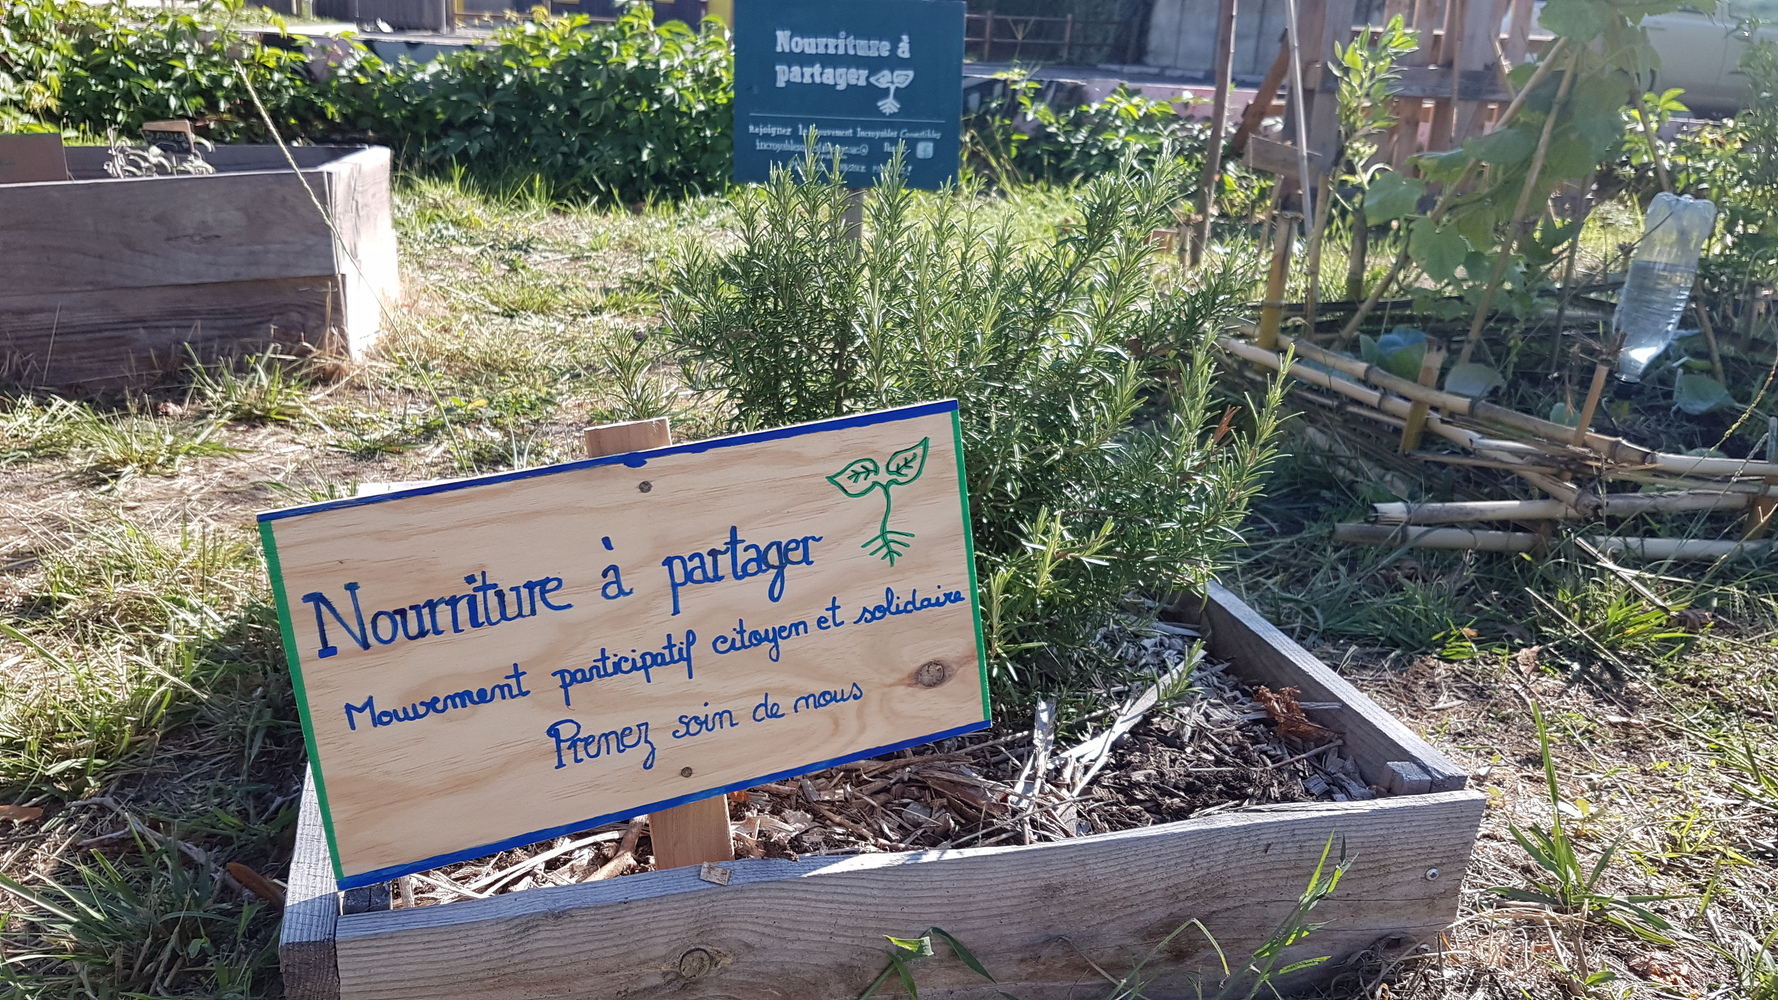 Nourriture à
partager
Rejoignez le mouvement Incroyables Comestibles
Nourriture à partager
Mouvement participatif citoyen et solidaire
Prenez soin de nous